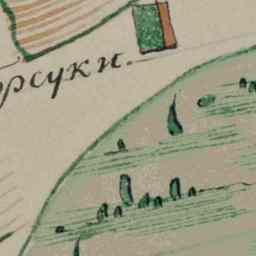 рсуки.